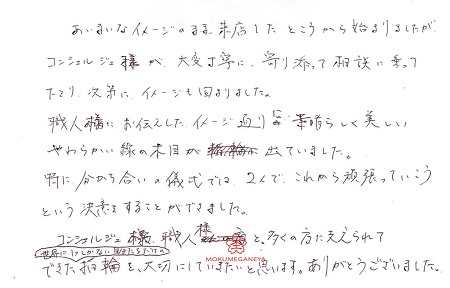 あいまいなイメージのまま来店したところから始まりましたが、
コンシェルジュ様が、大変丁寧に、寄り添って相談に乗って
下さり、次第に、イメージも固まりました。
職人様にお伝えしたイメージ通りに素晴らしく美しい
やわらかい線の木目が出ていました。
特に分かち合いの儀式では、2人で、これから頑張っていこう
という決意をすることができました。
コンシェルジュ様、職人様と、多くの方に支えられて
世界に1つしかない私たちだけの
できた指輪を、大切にしていきたいと思います。ありがとうございました。
MOKUMEGANEYA